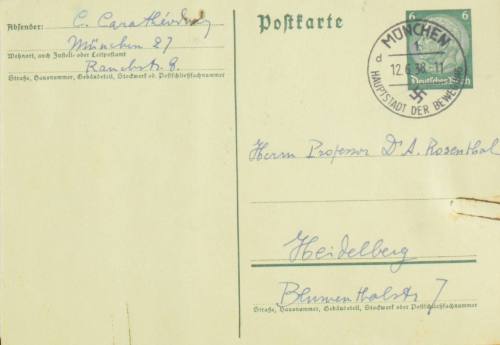 Absender: C. Carathéodory
München 27
Wohnort, auch Zustell- oder Leitpostamt
Rauchstr. 8.
Straße, Hausnummer, Gebäudeteil, Stockwerk od. Postschließfachnummer
Postkarte
6 6
Deutsches Reich
MÜNCHEN
1
d
12.6.38-11
HAUPTSTADT DER BEWEG
Herrn Professor Dr A. Rosenthal
Heidelberg
Blumenthalstr 7
Straße, Hausnummer, Gebäudeteil, Stockwerk oder Postschließfachnummer